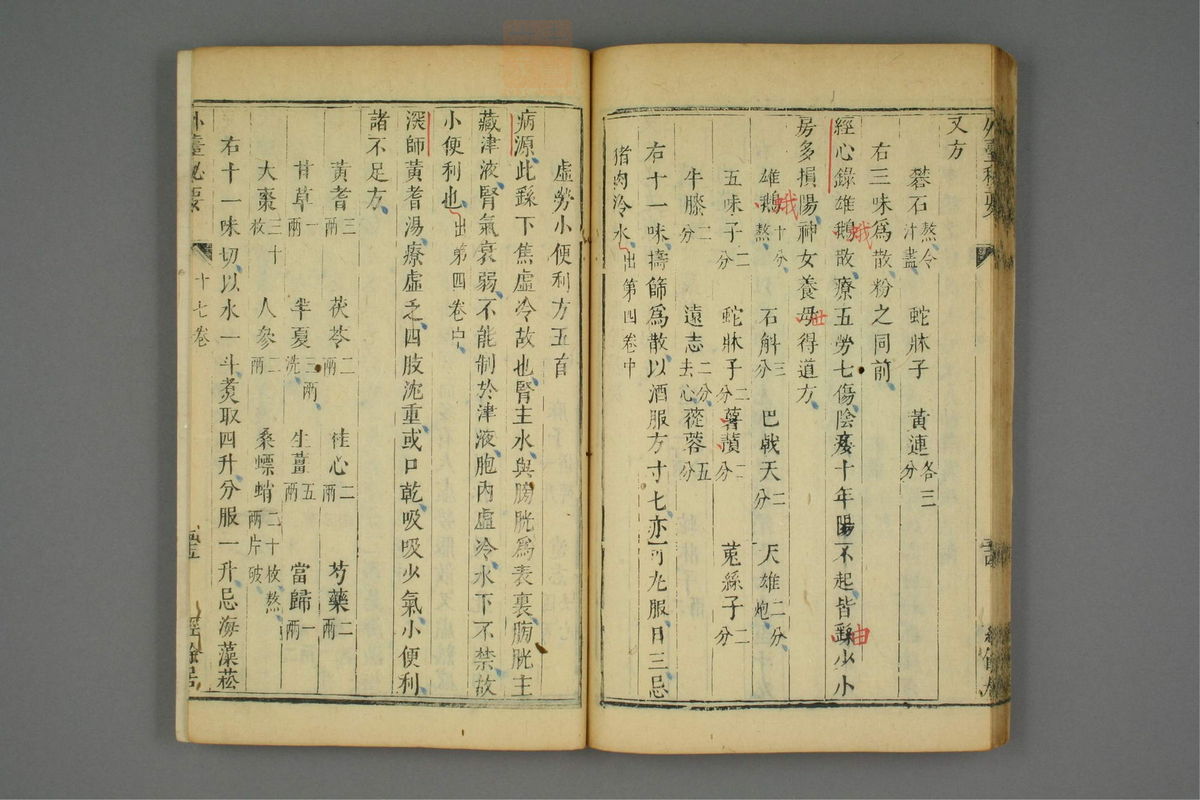 又方
礬石熬令汁盡 蛇牀子 黃連各三分
右三味爲散粉之同前
經心錄雄鵝散療五勞七傷陰痿十年陽不起皆繇少小
蛾
由
房多損陽神女養母得道方
世
雄鵝熬十分 石斛三分 巴戟天二分 天雄二分炮
蛾
五味子二分 蛇牀子二分 薯蕷二分 菟絲子二分
牛膝二分 遠志二分去心 蓯蓉五分
右十一味擣篩爲散以酒服方寸七亦可丸服日三忌
猪肉冷水出第四卷中
虛勞小便利方五首
病源此繇下焦虛冷故也腎主水與膀胱爲表裏膀胱主
藏津液腎氣衰弱不能制於津液胞內虛冷水下不禁故
小便利也出第四卷中
深師黃耆湯療虛乏四肢沈重或口乾吸吸少氣小便利
諸不足方
黃耆三兩 茯苓二兩 桂心二兩 芍藥二兩
甘草一兩 半夏三兩洗 生薑五兩 當歸一兩
大棗三十枚 人參二兩 桑螵蛸二十枚熬兩片破
右十一味切以水一斗煮取四升分服一升忌海藻菘
外臺秘要 十七卷 經餘居